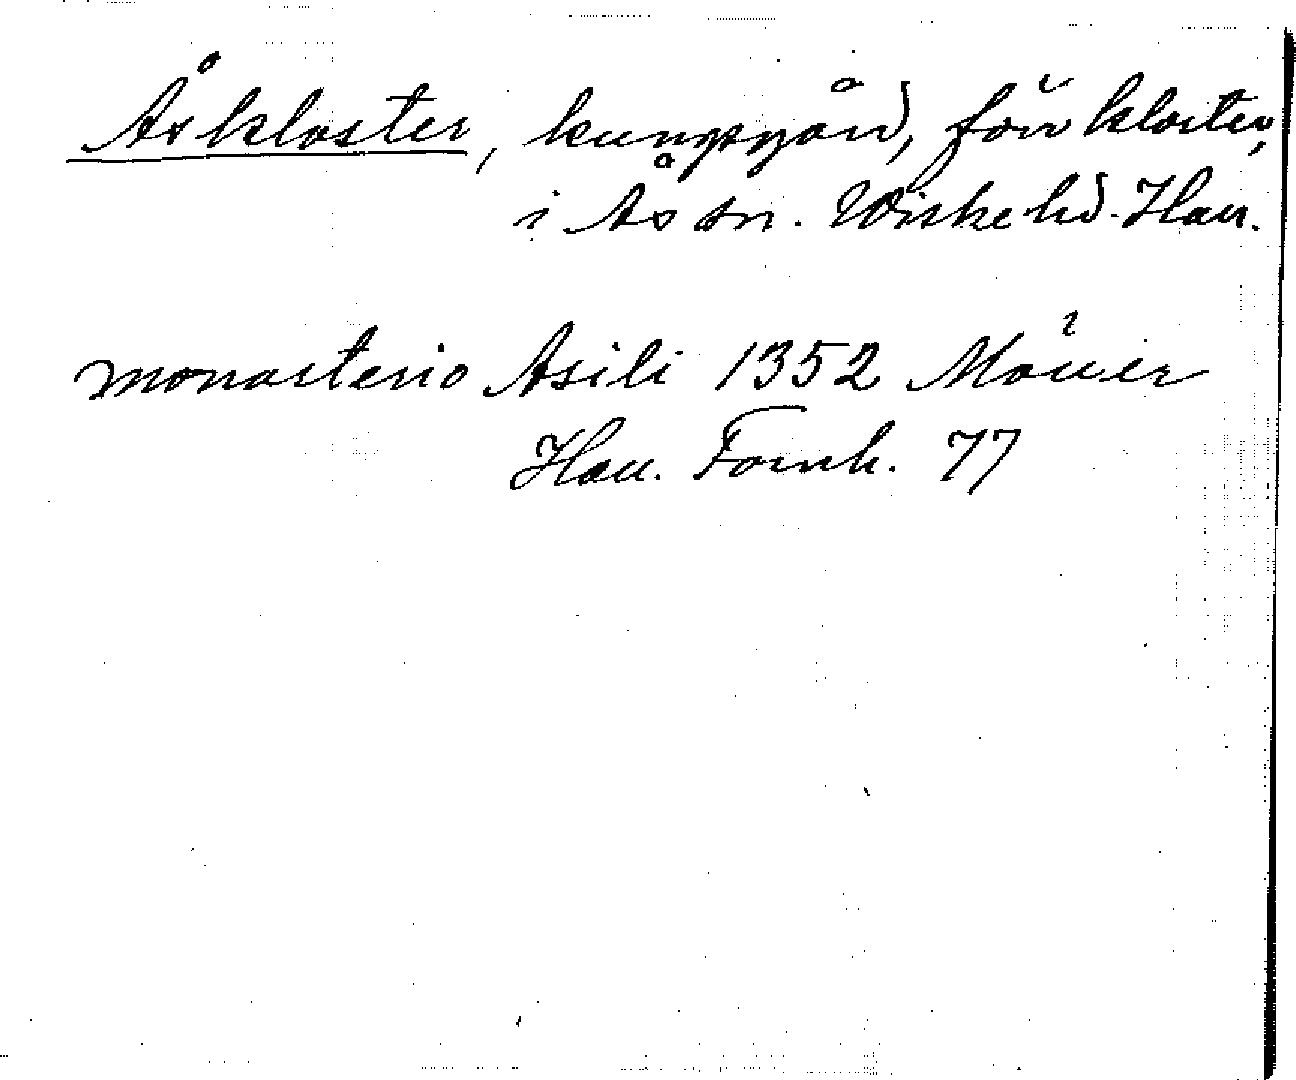 Åskloster, kungsgård, förr kloster,
i Ås sn. Wiske hd. Hall.
monasterio Asili 1352 Möller
Hall. Fornh. 77